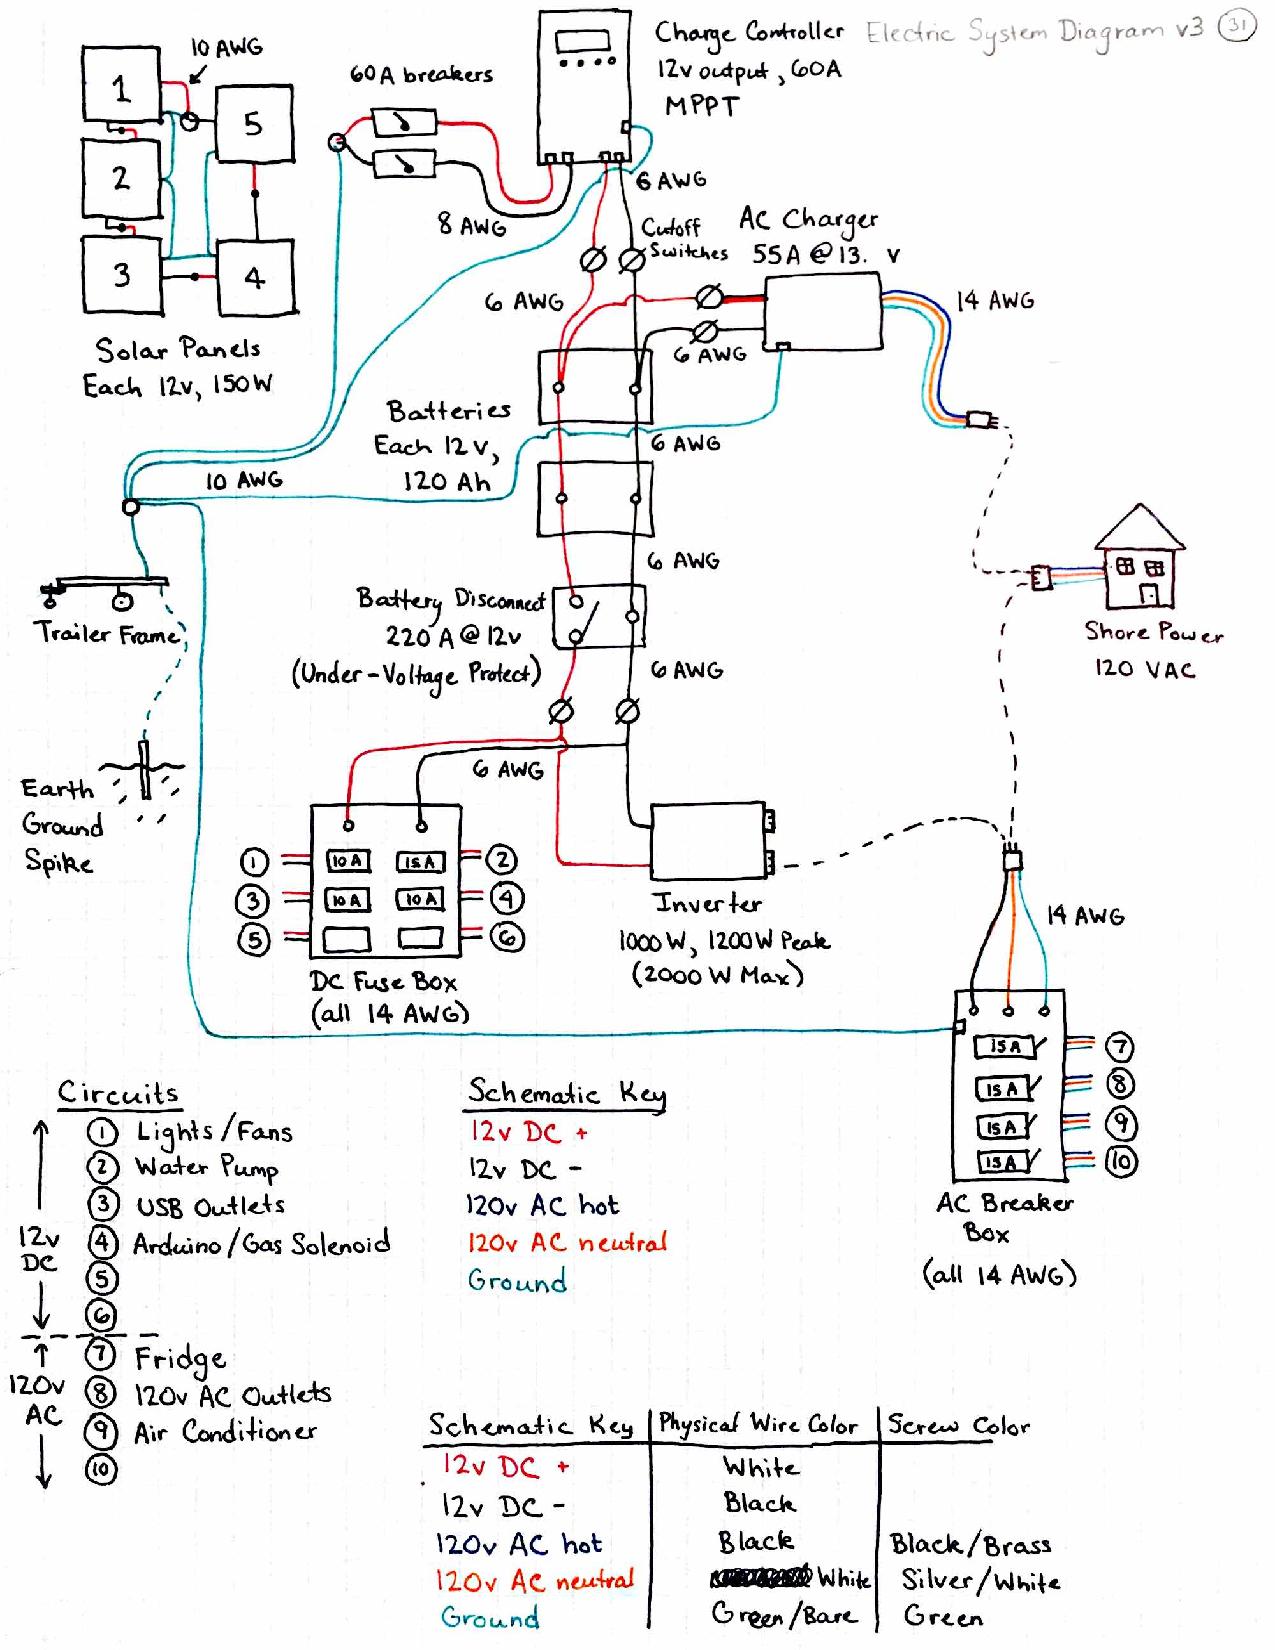 Electric System Diagram v3 31
10 AWG
1
2
3
4
5
Solar Panels
Each 12v, 150W
60A breakers
8 AWG
Charge Controller
12v output, 60A
MPPT
6 AWG
Cutoff
Switches
AC Charger
55A @ 13. v
6 AWG
6 AWG
14 AWG
Batteries
Each 12v,
120 Ah
6 AWG
10 AWG
6 AWG
Trailer Frame
Battery Disconnect
220 A @ 12v
(Under-Voltage Protect)
6 AWG
Shore Power
120 VAC
Earth
Ground
Spike
6 AWG
1 10A 15A 2
3 10A 10A 4
5 6
DC Fuse Box
(all 14 AWG)
Inverter
1000W, 1200W Peak
(2000 W Max)
14 AWG
15A 7
15A 8
15A 9
15A 10
AC Breaker
Box
(all 14 AWG)
Circuits
12v
DC
1 Lights/Fans
2 Water Pump
3 USB Outlets
4 Arduino/Gas Solenoid
5
6
120v
AC
7 Fridge
8 120v AC Outlets
9 Air Conditioner
10
Schematic Key
12v DC +
12v DC -
120v AC hot
120v AC neutral
Ground
Schematic Key Physical Wire Color Screw Color
12v DC + White
12v DC - Black
120v AC hot Black Black/Brass
120v AC neutral White Silver/White
Ground Green/Bare Green